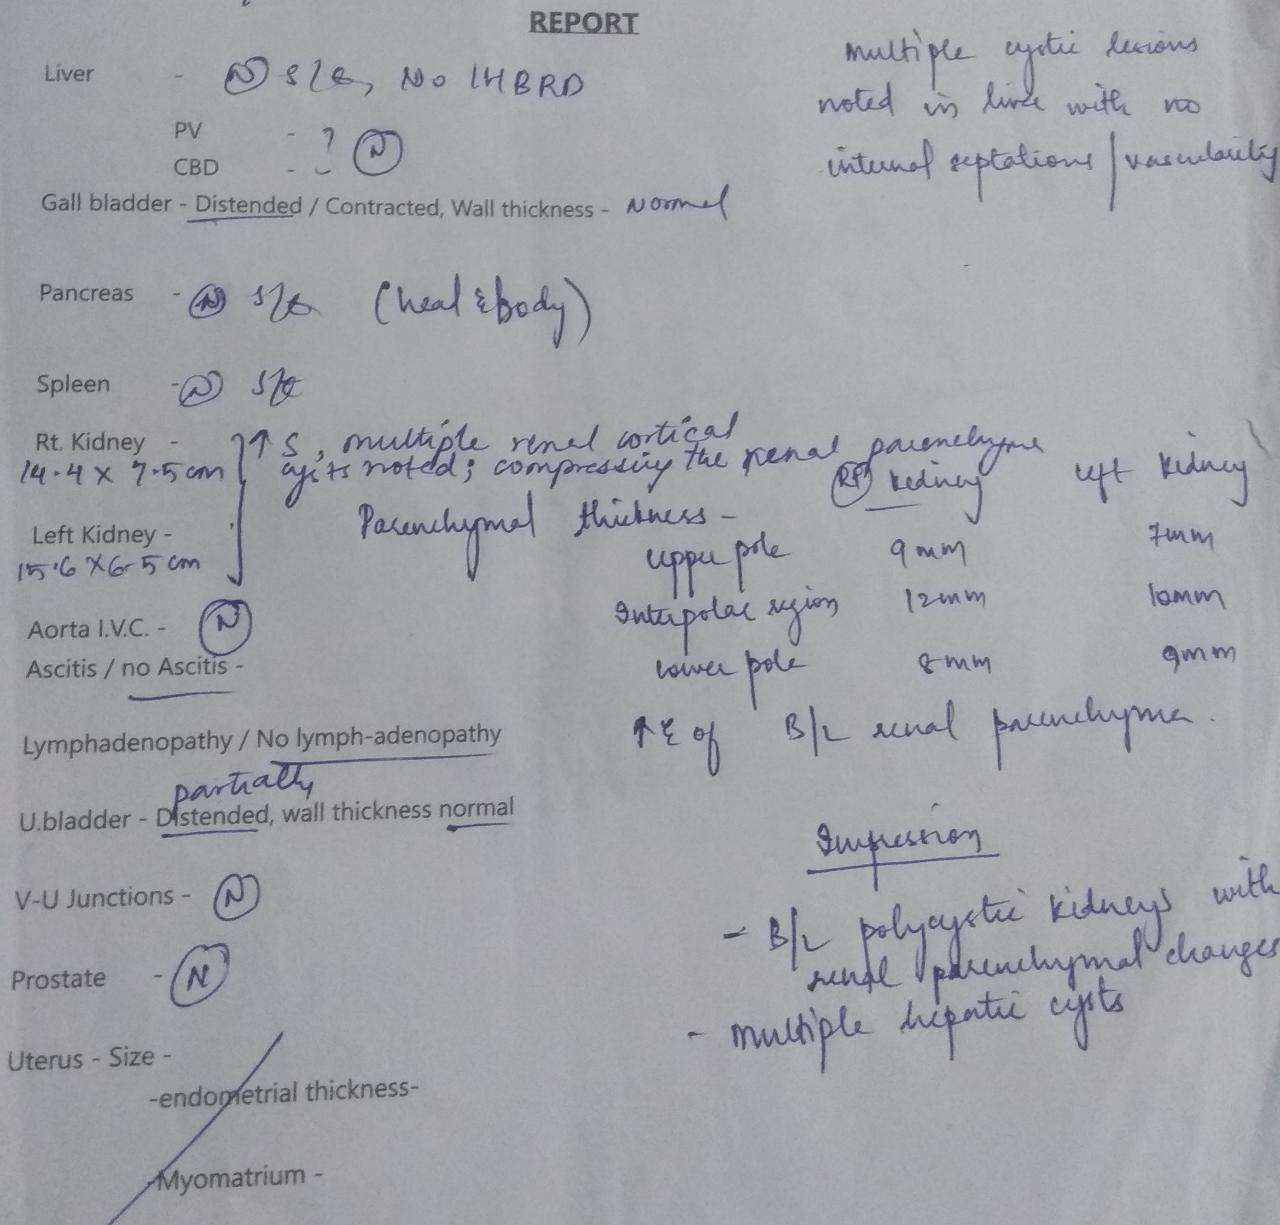 REPORT
Liver - (N) S/E, No IHBRD
multiple cystic lesions
noted in liver with no
internal septations / vascularity
PV - } (N)
CBD -
Gall bladder - Distended / Contracted, Wall thickness - Normal
Pancreas - (N) S/E (head & body)
Spleen - (N) S/E
Rt. Kidney - ↑ S, multiple renal cortical
14.4 X 7.5 cm cysts noted; compressing the renal parenchyma
Parenchymal thickness - (Rt) kidney left kidney
Left Kidney - upper pole 9 mm 7mm
15.6 X 6.5 cm
Interpolar region 12mm 10mm
Aorta I.V.C. - (N)
Ascitis / no Ascitis - lower pole 8mm 9mm
Lymphadenopathy / No lymph-adenopathy ↑ E of B/L renal parenchyma.
partially
U.bladder - Distended, wall thickness normal
Impression
V-U Junctions - (N)
- B/L polycystic kidneys with
renal parenchymal changes
Prostate - (N)
- multiple hepatic cysts
Uterus - Size -
-endometrial thickness-
-Myomatrium -